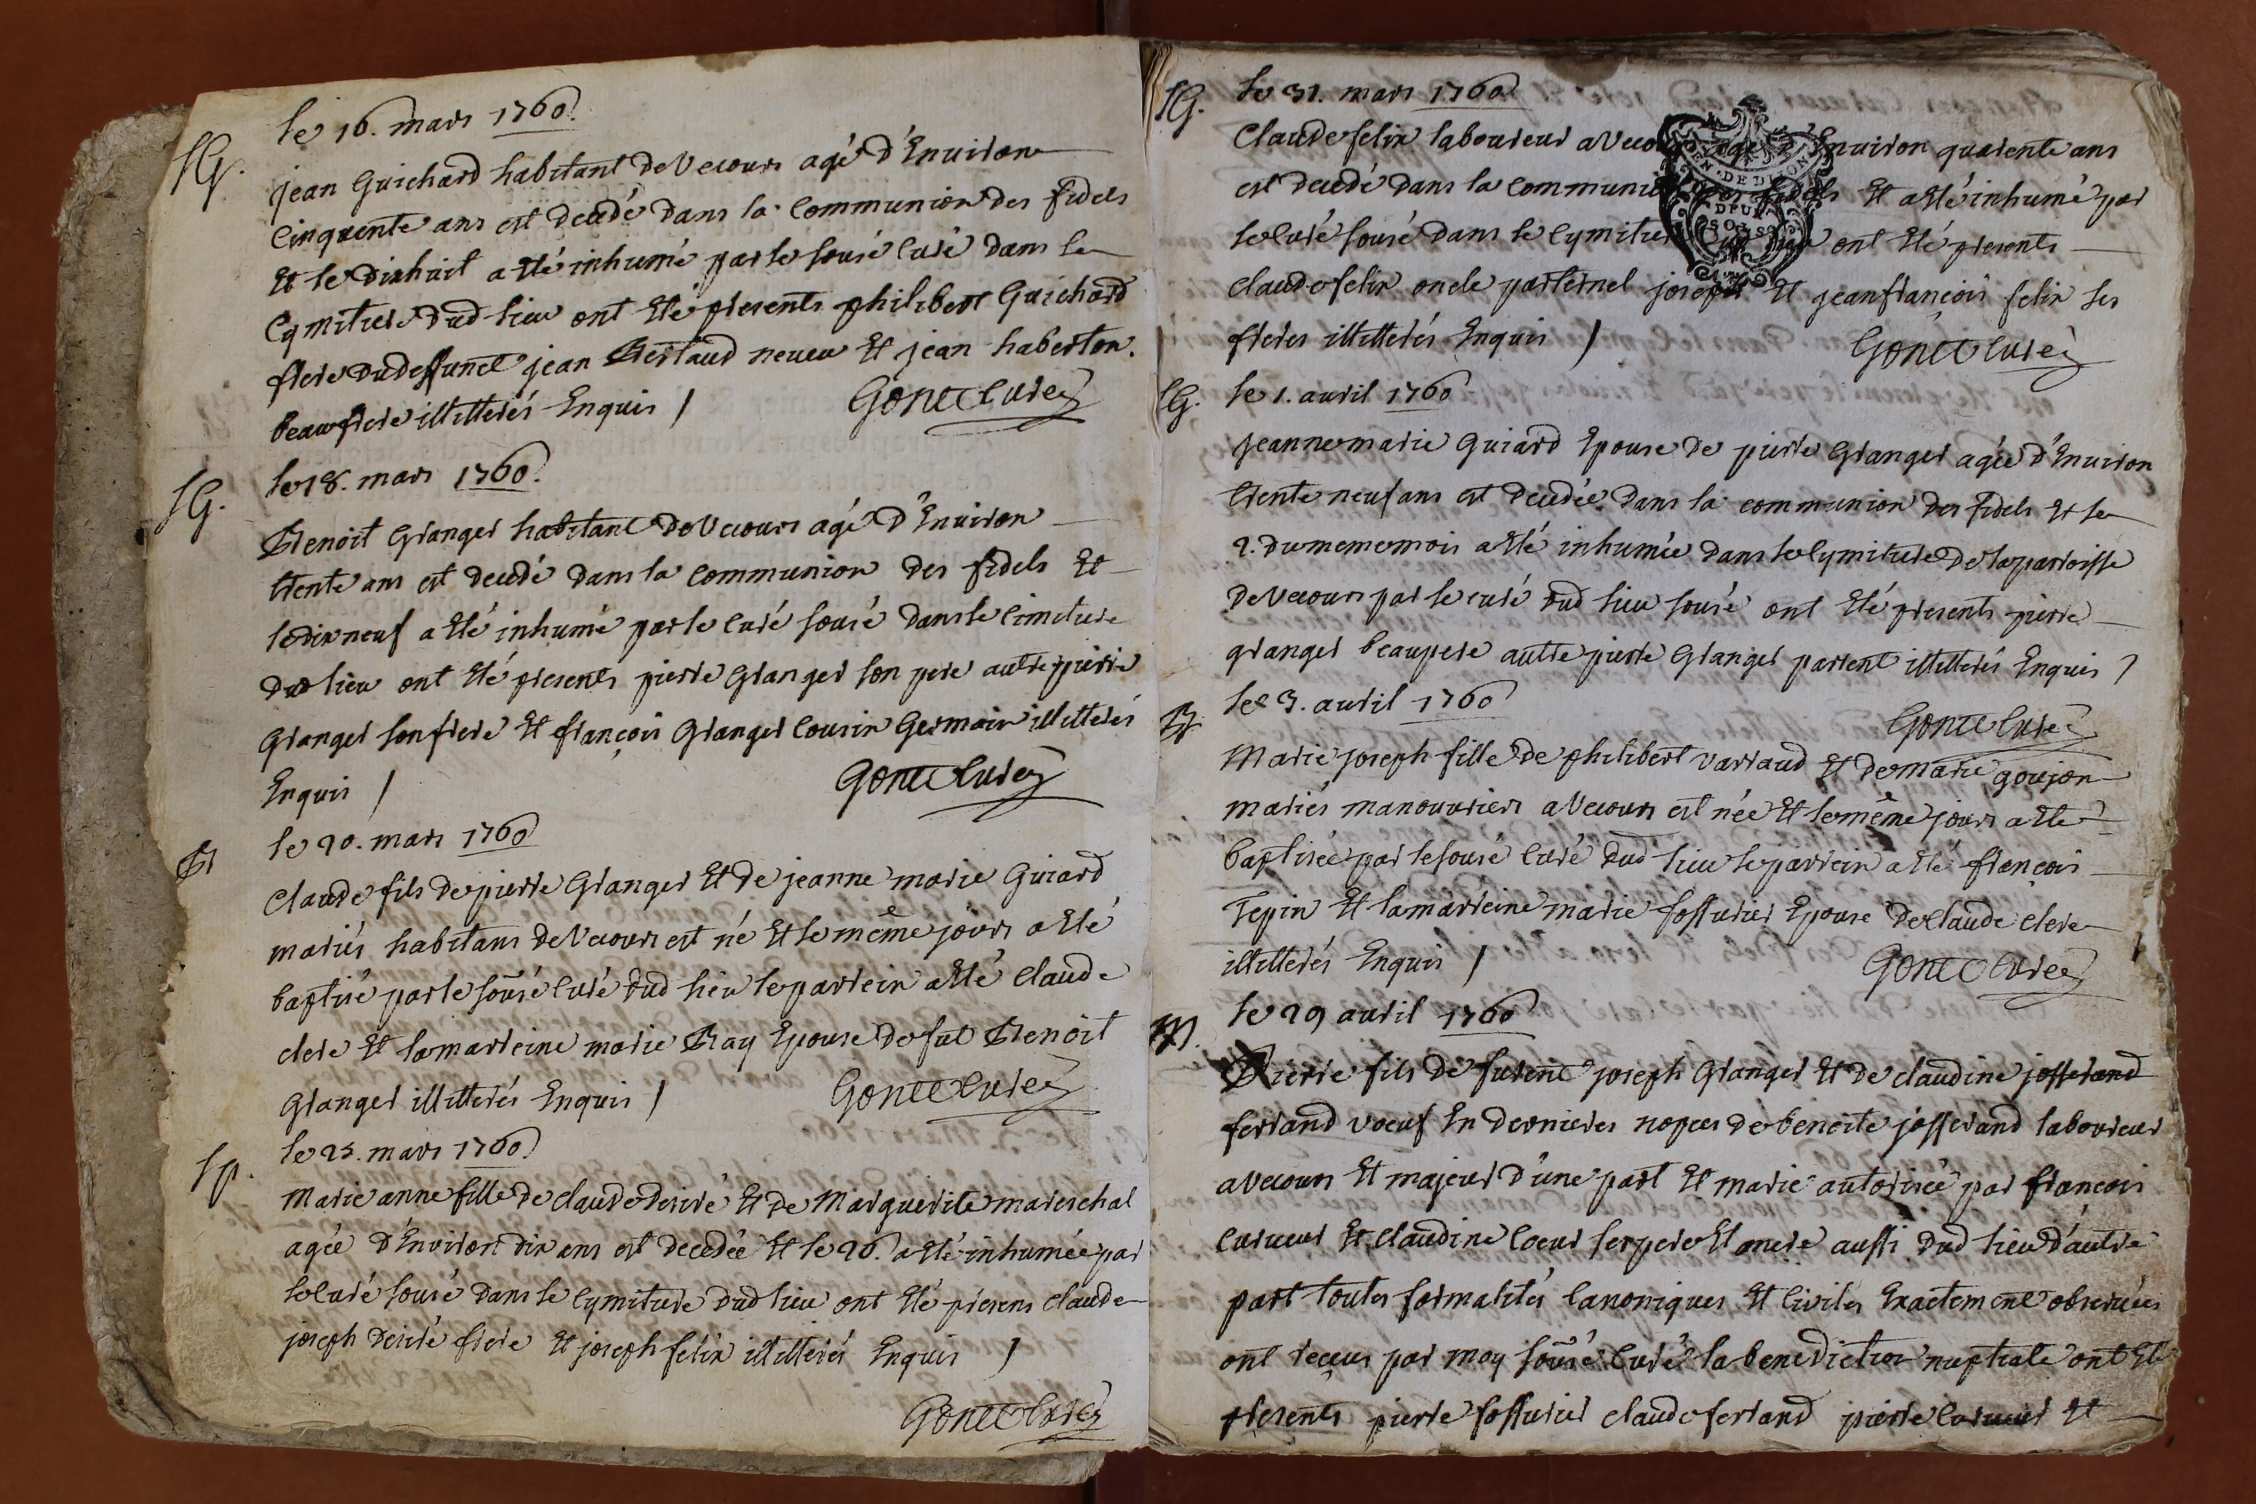 le 16. mars 1760.
SG.
jean Guichard habitant de Vecours agé d'Environ
Cinquente ans est decedé dans la Communion des fidels
Et le dixhuit a Eté inhumé par le sousé Curé dans le
Cymitiere dud lieu ont Eté presents philibert Guichard
frere du deffunct jean Bertaud neveu Et jean haberton.
beaufrere illitterés Enquis /
Gonet Curé
le 18. mars 1760.
SG.
Benoit Granger habitant de Vecours agé d'Environ
trente ans est decedé dans la Communion des fidels Et
le dix neuf a Eté inhumé par le Curé sousé dans le Cimetiere
dud lieu ont Eté presents pierre Granger son pere autre pierre
Granger son frere Et françois Granger Cousin Germain illitterés
Enquis /
Gonet Curé
le 20. mars 1760
B
Claude fils de pierre Granger Et de jeanne marie Guiard
mariés habitans de Vecours est né Et le même jours a Eté
baptisé par le sousé Curé dud lieu le parrein a Eté Claude
clere Et la marreine marie Bay Epouse de fut Benoit
Granger illitterés Enquis /
Gonet Curé
le 25. mars 1760.
Sp.
Marie anne fille de Claude desiré Et de Marguerite mareschal
agée d'Environ dix ans est decedée Et le 26. a Eté inhumée par
le Curé sousé dans le Cymitiere dud lieu ont Eté presens Claude
joseph desiré frere Et joseph felix illitterés Enquis /
Gonet Curé
SG.
le 31. mars 1760
Claude felix laboureur a Vecours agé d'Environ quarente ans
est decedé dans la Communion des fidels Et a Eté inhumé par
le Curé sousé dans le Cymitiere dud lieu ont Eté presents
Claude felix oncle parternel joseph Et jean françois felix ses
freres illitterés Enquis /
Gonet Curé
SG.
le 1. avril 1760
jeanne marie Guiard Epouse de pierre Granger agée d'Environ
trente neuf ans est decedée dans la communion des fidels Et le
2. du meme mois a Eté inhumée dans le Cymitiere de la parroisse
de Vecours par le curé dud lieu sousé ont Eté presents pierre
granger beaupere autre pierre Granger parrent illitterés Enquis /
Gonet Curé
le 3. avril 1760
B
Marie joseph fille de philibert varraud Et de marie goujon
mariés manouvriers a Vecours est née Et le même jours a Eté
baptisée par le sousé Curé dud lieu le parrein a Eté françois
Tepin Et la marreine marie fossurier Epouse de Claude clere
illitterés Enquis /
Gonet Curé
le 29 avril 1760
M.
Pierre fils de joseph Granger Et de claudine josserand
ferrand voeuf En dernieres nopces de benoite josserand laboureur
a Vecours Et majeur d'une part Et marie autorisée par françois
Cursieur Et claudine Coeur ses pere Et mere aussi dud lieu d'autre
part toutes formalités Canoniques Et Civiles Exactement observées
ont reçeus par moy sousé Curé la benediction nuptiale ont Eté
presents pierre fossurier claude ferrand pierre Et